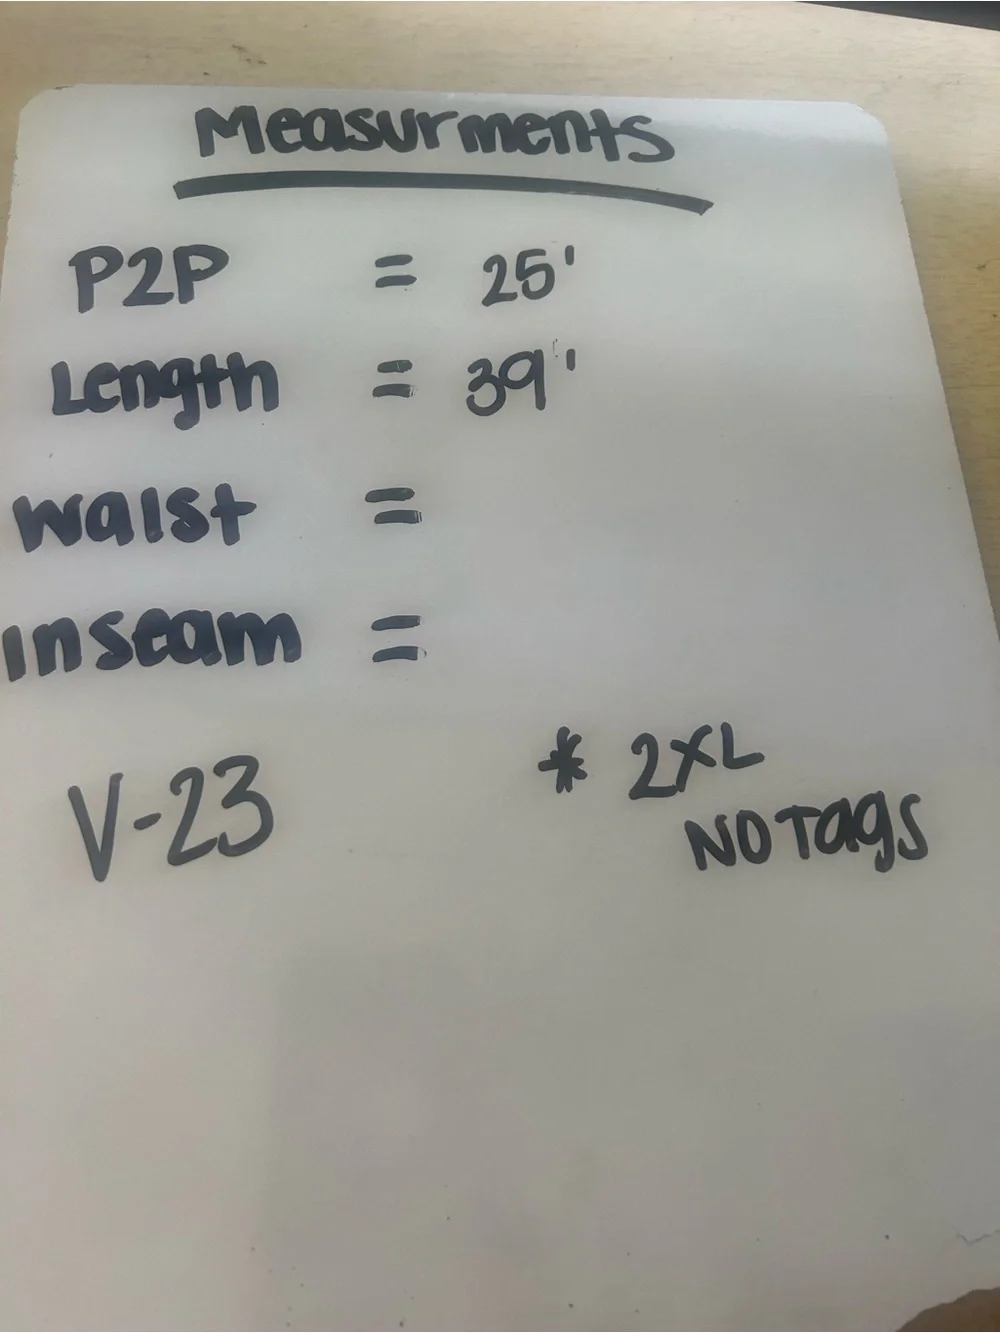 Measurments
P2P = 25'
Length = 39'
Waist =
Inseam =
V-23
* 2XL
NO Tags